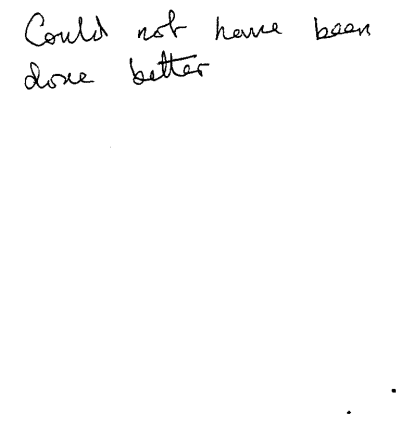 Could not have been
done better